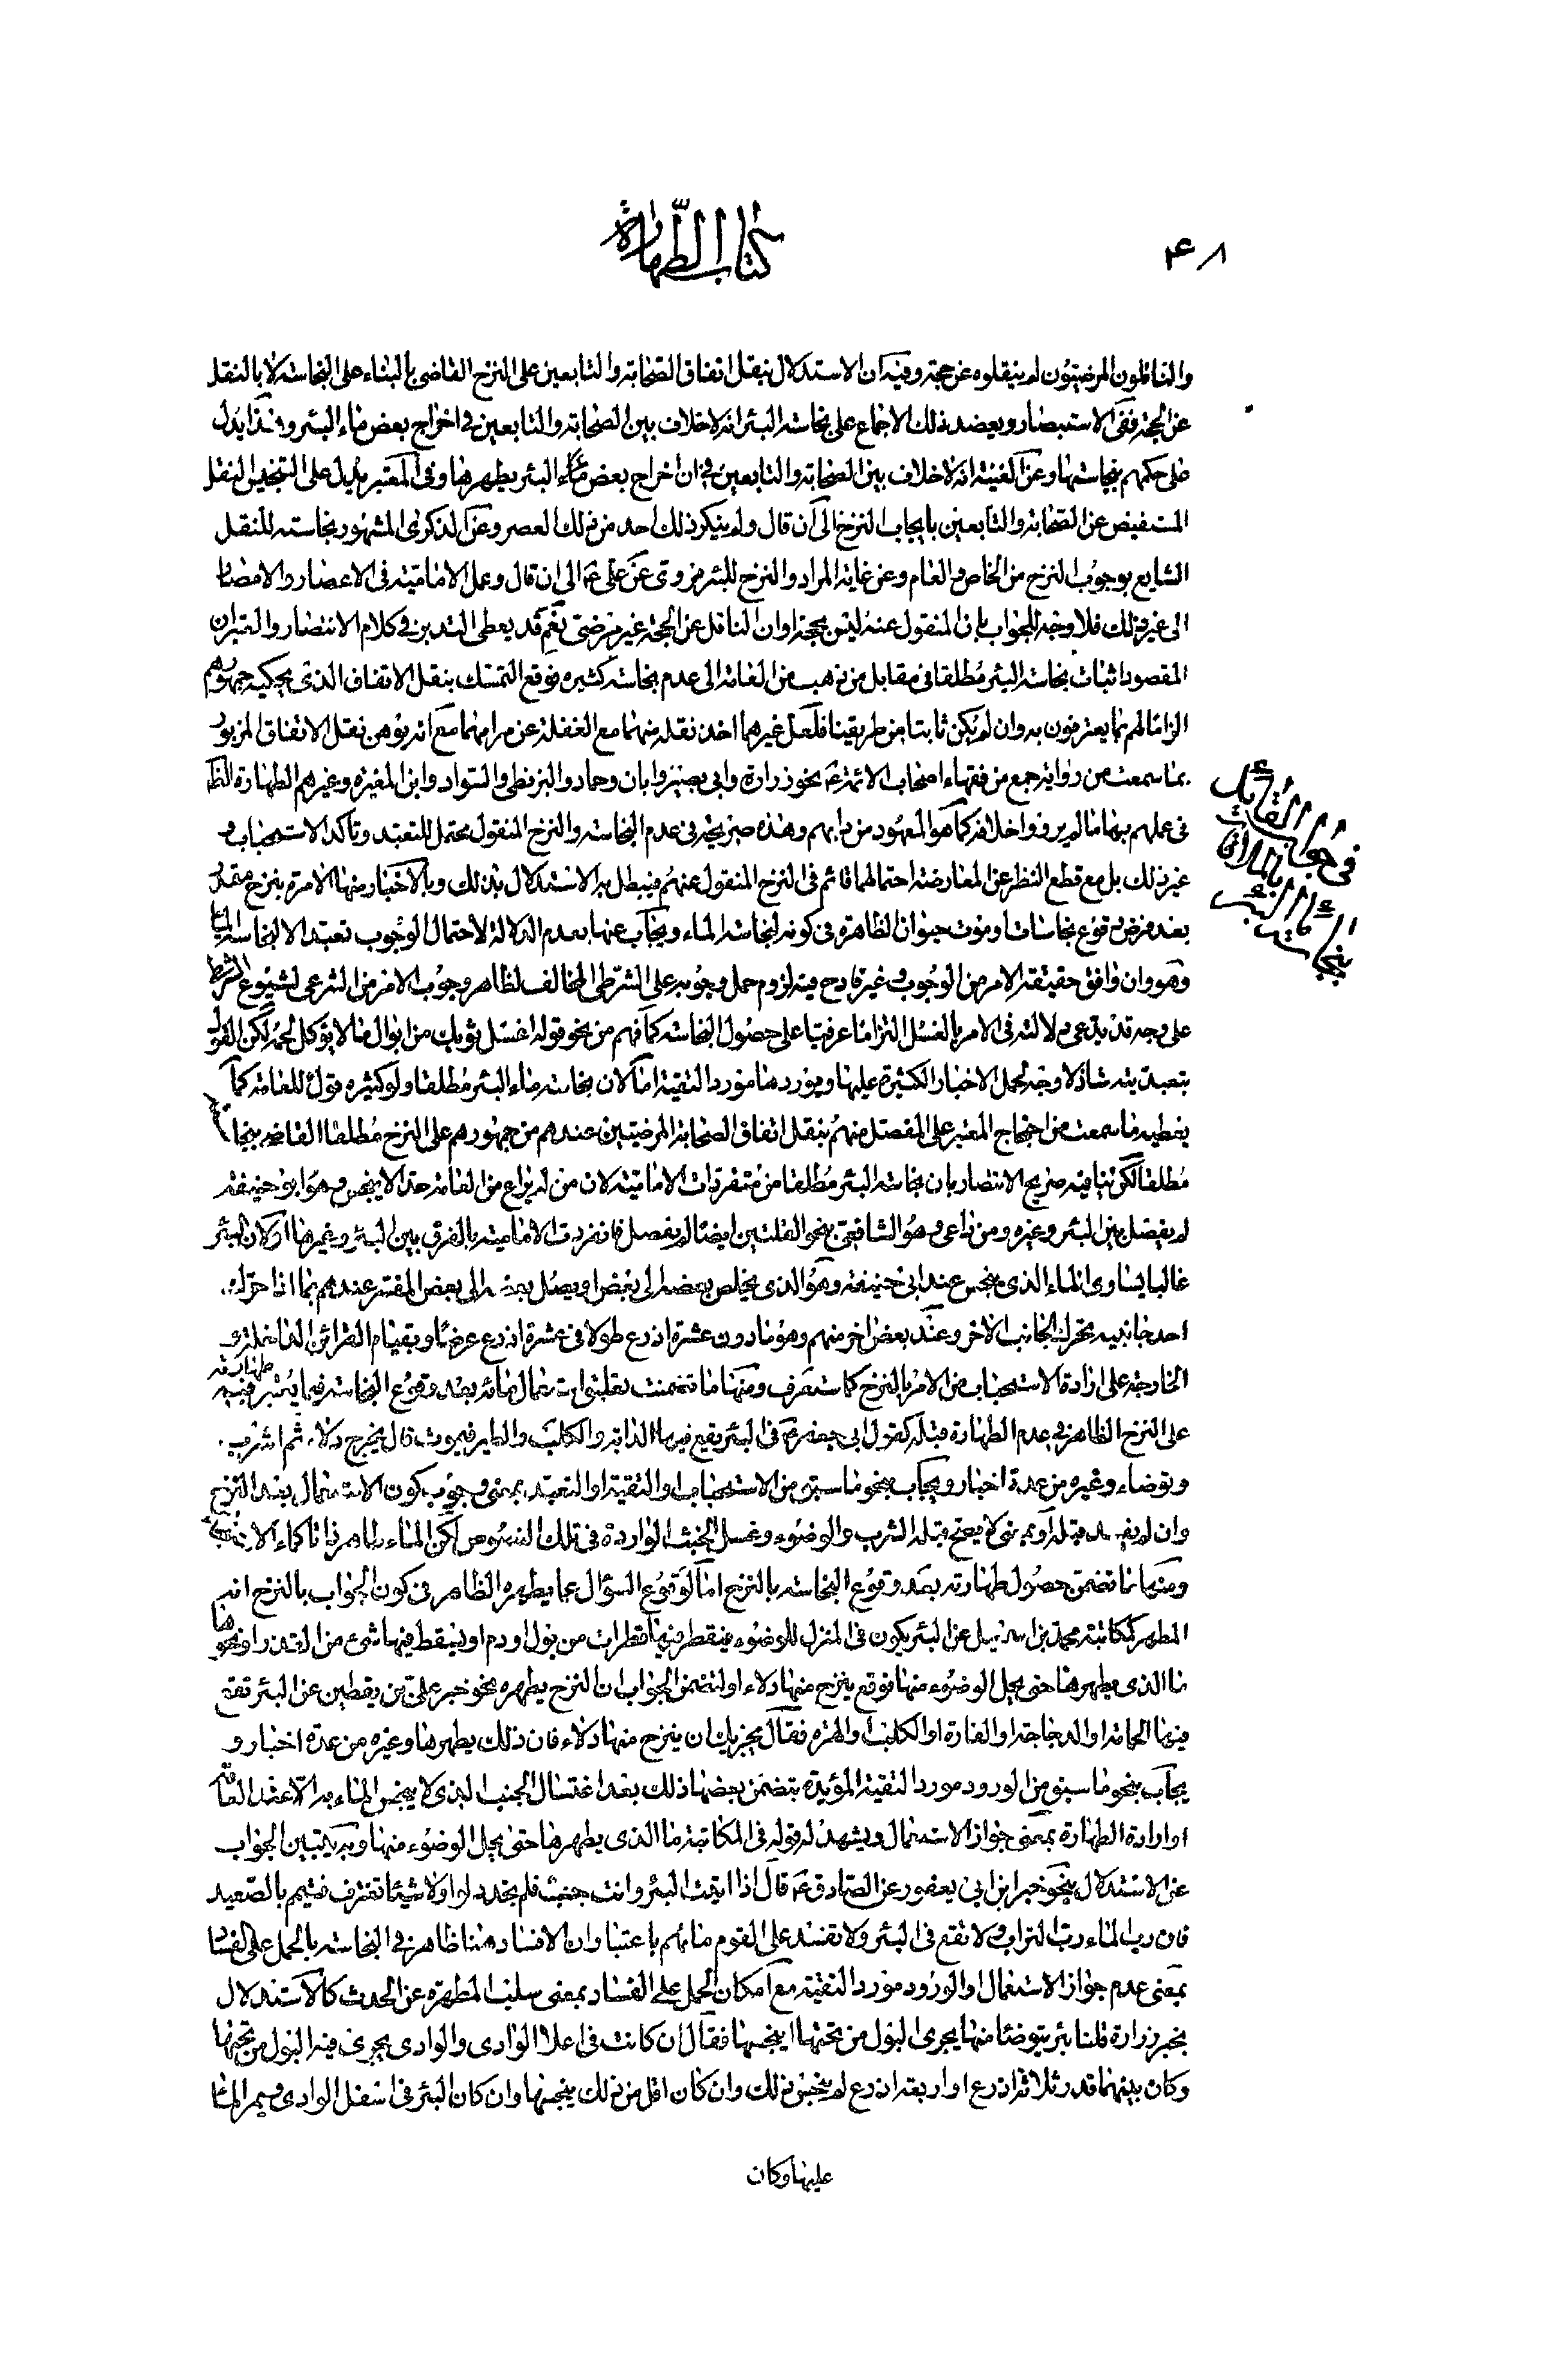 ۴۸
كتاب الطّهارة
والناقلون المرضيّون لم ينقلوه عن حجة وفيه ان الاستدلال بنقل اتفاق الصّحابة والتابعين على النزح القاضى بالبناء على النجاسة لا بالنقل
عن الحجة ففى الاستبصار ويعضد ذلك الاجماع على نجاسة البئر انه لا خلاف بين الصّحابة والتابعين فى اخراج بعض ماء البئر وهذا يدل
على حكمهم بنجاستها وعن الغنية انه لا خلاف بين الصّحابة والتابعين فى ان اخراج بعض ماء البئر يطهرها وفى المعتبر يدل على التنجيس النقل
المستفيض عن الصّحابة والتابعين بايجاب النزح الى ان قال ولم ينكر ذلك احد من ذلك العصر وعن الذكرى المشهور نجاسته للنقل
الشايع بوجوب النزح من الخاص والعام وعن غاية المراد والنزح للبئر مروى عن على ع الى ان قال وعمل الاماميّة فى الاعصار والامصار
الى غير ذلك فلا وجه للجواب بان المنقول عنه ليس بحجة او ان الناقل عن الحجة غير مرضىّ نعم قد يعطى التدبر فى كلام الانتصار والمعتبر ان
المقصود اثبات نجاسة البئر مطلقا فى مقابل من ذهب من العامة الى عدم نجاسة كثيره فوقع التمسّك بنقل الاتفاق الذى يحكيه جمهورهم
الزاما لهم بما يعترفون به وان لم يكن ثابتا من طريقنا فلعل غيرهما اخذ نقله منهما مع الغفلة عن مرامهما مع انه يوهن نقل الاتفاق المزبور
بما سمعت من رواية جمع من فقهاء اصحاب الائمة ع نحو زرارة وابى بصير وابان وحماد والبزنطى والسّواد وابن المغيرة وغيرهم الطهارة
فى عملهم بها ما لم يرووا خلافه كما هو المعهود من دابهم وهذه صريحة فى عدم النجاسة والنزح المنقول محتمل للتعبّد وتاكد الاستحباب و
غير ذلك بل مع قطع النظر عن المعارضة احتمالهما قائم فى النزح المنقول عنهم فيبطل به الاستدلال بذلك وبالاخبار منها الامرة بنزح مقدر
بعد فرض وقوع نجاسات او موت حيوان الظاهرة فى كونه لنجاسة الماء ويجاب عنها بعدم الدلالة لاحتمال الوجوب تعبّدا لا لنجاسة الماء
وهو وان وافق حقيقة الامر من الوجوب غير قادح فيه لزوم حمل وجوبه على الشرطى المخالف لظاهر وجوب الامر من الشرعى لشيوع الشرطى
على وجه قد يدعى دلالته فى الامر بالغسل التزاما عرفيا على حصول النجاسة كما فهم من نحو قوله اغسل ثوبك من ابوال ما لا يؤكل لحمه لكن القول
بتعبديته شاذ لا وجه لحمل الاخبار الكثيرة عليها وبورودها مورد التقية اما لان نجاسة ماء البئر مطلقا ولو كثيره قول للعامة كما
يعطيه ما سمعت من احتجاج المعتبر على المفصّل منهم بنقل اتفاق الصّحابة المرضيّين عندهم من جمهورهم على النزح مطلقا القاضى بنجاسته
مطلقا لكن ينافيه صريح الانتصار بان نجاسة البئر مطلقا من متفردات الاماميّة لان من لم يراع من العامة حدا لا ينجس وهو ابو حنيفة
لم يفصل بين البئر وغيره ومن راعى وهو الشافعىّ بنحو القلتين ايضا لم يفصل فانفردت الاماميّة بالفرق بين البئر وغيرها او لان البئر
غالبا يساوى الماء الذى ينجس عند ابى حنيفة وهو الذى يخلص بعضه الى بعض او يصل بعضه الى بعض المفسّر عندهم بما اذا حرّك
احد جانبيه يتحرك الجانب الاخر وعند بعض اخر منهم وهو ما دون عشرة اذرع طولا فى عشرة اذرع عرضا وبقيام القرائن الداخلة و
الخارجة على ارادة الاستحباب من الامر بالنزح كما ستعرف ومنها ما تضمنت تعليق استعمال مائه بعد وقوع النجاسة فيما يعتبر فيه طهارته
على النزح الظاهر فى عدم الطهارة قبله كقول ابى جعفر ع فى البئر يقع فيها الدابة والكلب والطير فيموت قال يخرج دلاء ثم اشرب
وتوضاء وغيره من عدة اخبار ويجاب بنحو ما سبق من الاستحباب او التقية او التعبّد بمعنى وجوب كون الاستعمال بعد النزح
وان لم يفسد قبله او بمعنى لا يصح قبله الشرب والوضوء وغسل الخبث الواردة فى تلك النصوص لكن الماء طاهر ذاتا كماء
ومنها ما تضمن حصول طهارته بعد وقوع النجاسة بالنزح اما لوقوع السؤال عما يطهره الظاهر فى كون الجواب بالنزح انه
المطهر كمكاتبة محمد بن اسمعيل عن البئر يكون فى المنزل للوضوء فيقطر فيها قطرات من بول او دم او يسقط فيها شئ من العذرة او نحوها
ما الذى يطهرها حتى يحل الوضوء منها فوقع ينزح منها دلاء او لتضمن الجواب ان النزح يطهره نحو خبر علىّ بن يقطين عن البئر تقع
فيها الحمامة او الدجاجة او الفارة او الكلب او الهرة فقال يجزيك ان ينزح منها دلاء فان ذلك يطهرها وغيره من عدة اخبار و
يجاب بنحو ما سبق من الورود مورد التقية المؤيدة بتضمن بعضها ذلك بعد اغتسال الجنب الذى لا ينجس الماء به الّا عند العامّة
او ارادة الطهارة بمعنى جواز الاستعمال ويشهد له قوله فى المكاتبة ما الذى يطهرها حتى يحل الوضوء منها وبه يتبين الجواب
عن الاستدلال بنحو خبر ابن ابى يعفور عن الصّادق ع قال اذا اتيت البئر وانت جنب فلم تجد دلوا ولا شيئا تغترف فتيمم بالصّعيد
فان رب الماء رب التراب ولا تقع فى البئر ولا تفسد على القوم مائهم باعتبار ان الافساد هنا ظاهر فى النجاسة بالحمل على الفساد
بمعنى عدم جواز الاستعمال او الورود مورد التقية مع امكان الحمل على الفساد بمعنى سلب المطهرة عن الحدث كالاستدلال
بخبر زرارة قلنا بئر يتوضا منها يجرى البول من تحتها اينجسها فقال ان كانت فى اعلا الوادى والوادى يجرى فيه البول من تحتها
وكان بينهما قدر ثلاثة اذرع او اربعة اذرع لم ينجس ذلك وان كان اقل من ذلك ينجسها وان كان البئر فى اسفل الوادى ويمر الماء
عليها وكان
فى جواب القائلين
بنجاسة البئر